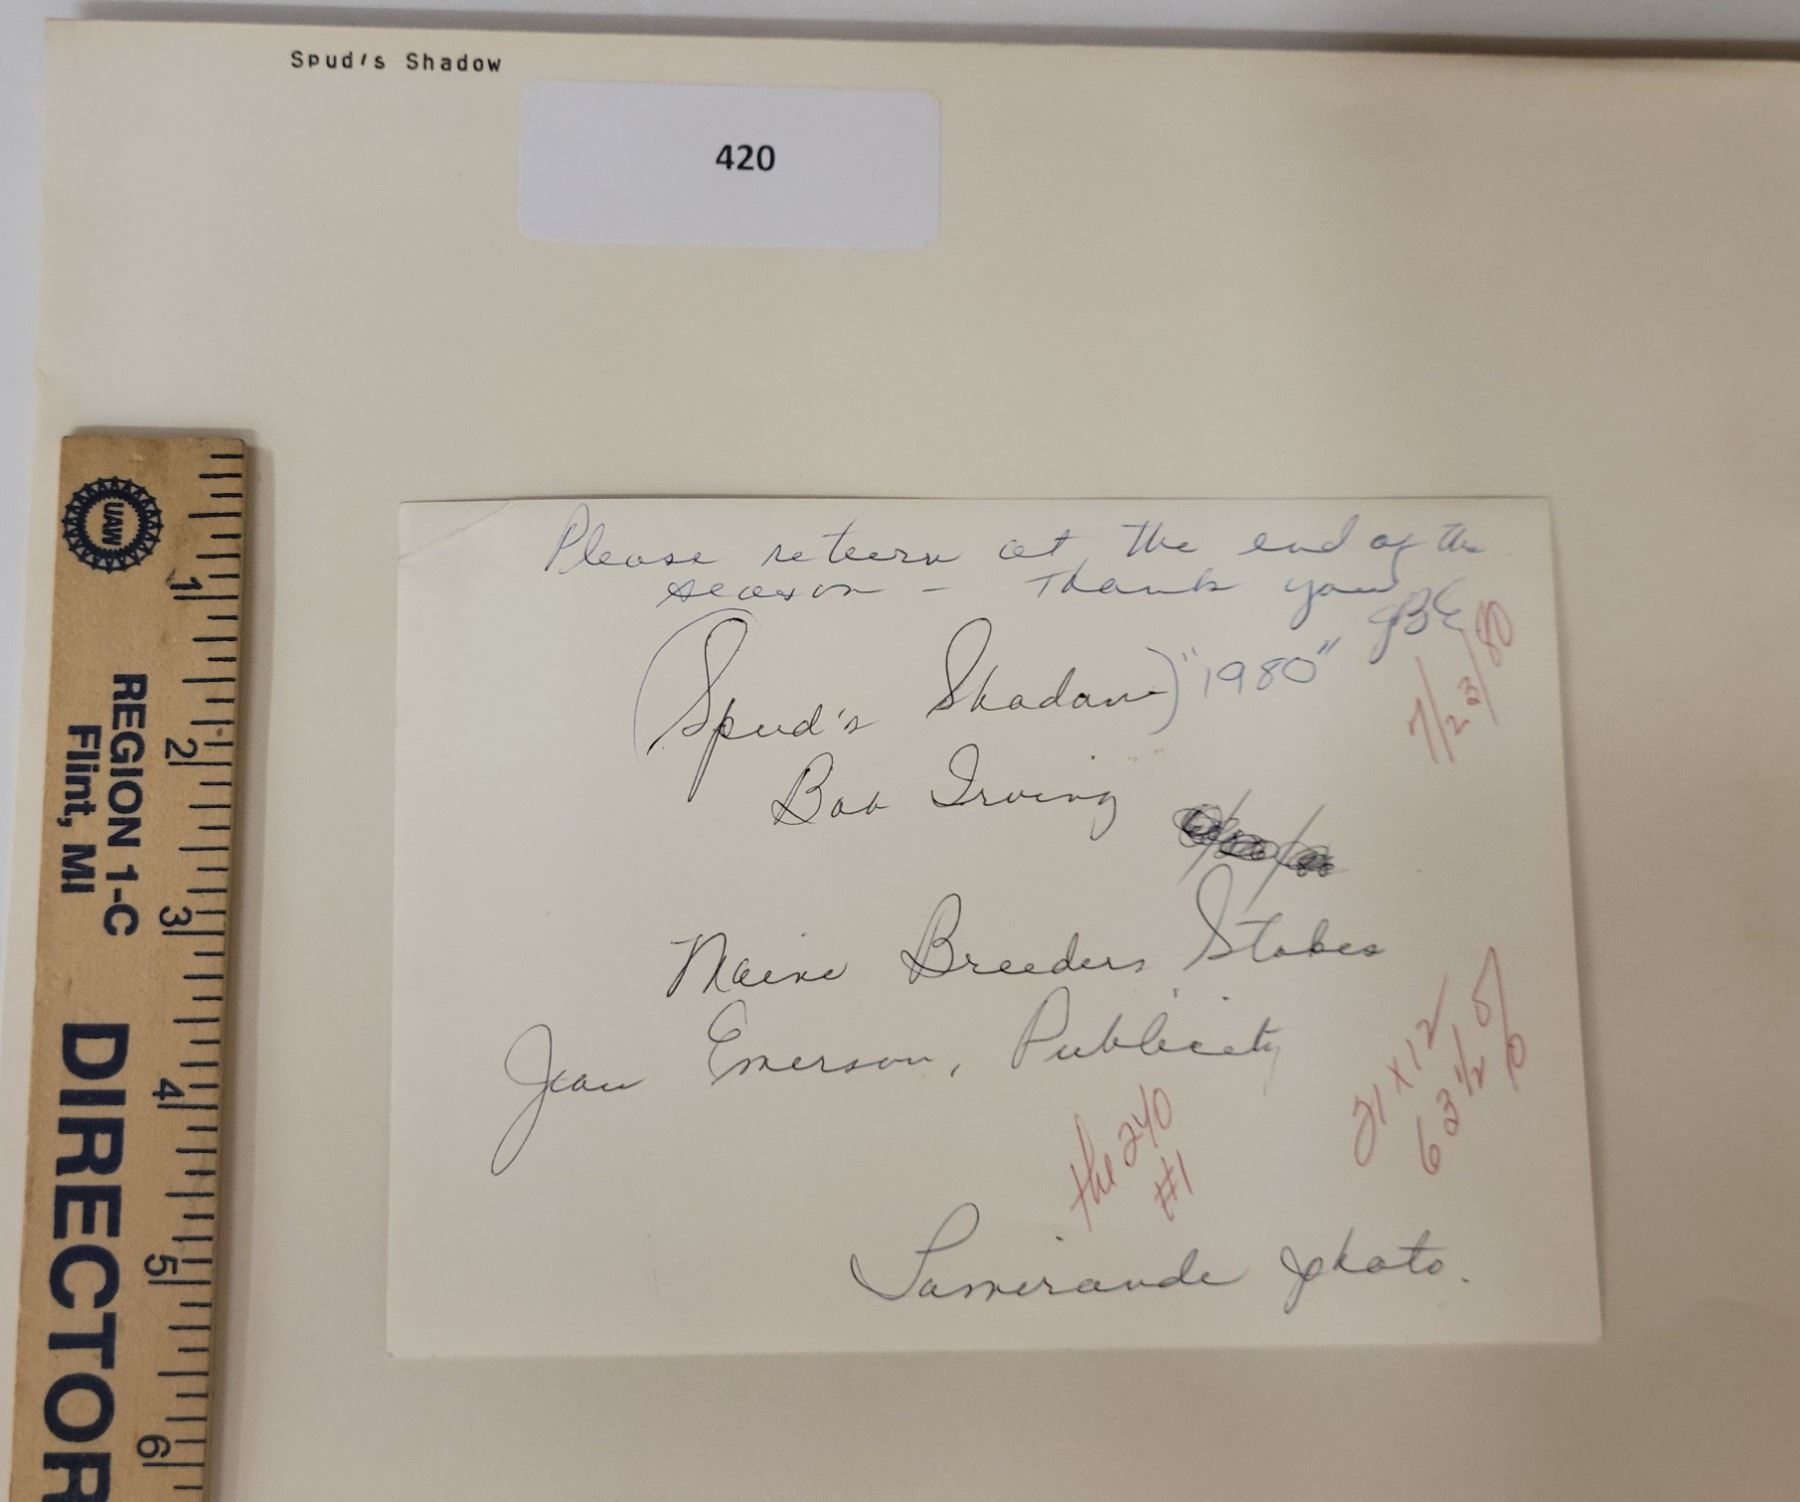 Spud's Shadow
420
Please return at the end of the
season - Thank you
JBE
(Spud's Shadow) "1980"
7/23/80
Bob Irving
Maine Breeders Stakes
Jean Emerson, Publicity
21 x 12
63 1/2 %
the 240
#1
Lamirande photo.
UAW
REGION 1-C
Flint, MI
DIRECTOR
1
2
3
4
5
6